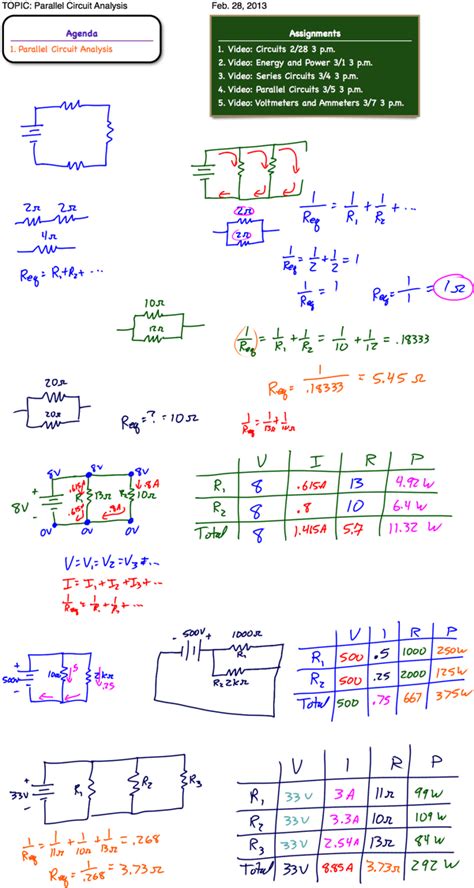 TOPIC: Parallel Circuit Analysis
Feb. 28, 2013
Agenda
1. Parallel Circuit Analysis
Assignments
1. Video: Circuits 2/28 3 p.m.
2. Video: Energy and Power 3/1 3 p.m.
3. Video: Series Circuits 3/4 3 p.m.
4. Video: Parallel Circuits 3/5 3 p.m.
5. Video: Voltmeters and Ammeters 3/7 3 p.m.
2Ω 2Ω
4Ω
Req = R1 + R2 + ...
2Ω
2Ω
1/Req = 1/R1 + 1/R2 + ...
1/Req = 1/2 + 1/2 = 1
1/Req = 1
Req = 1/1 = 1Ω
10Ω
12Ω
1/Req = 1/R1 + 1/R2 = 1/10 + 1/12 = .18333
Req = 1/.18333 = 5.45 Ω
20Ω
20Ω
Req = ? = 10Ω
1/Req = 1/13Ω + 1/10Ω
8V 8V 8V
8V + -
.615A R1 13Ω R2 10Ω .8A
.615A .8A
0V 0V 0V
V I R P
R1 8 .615 13 4.92 W
R2 8 .8 10 6.4 W
Total 8 1.415 5.7 11.32 W
V = V1 = V2 = V3 = ...
I = I1 + I2 + I3 + ...
1/Req = 1/R1 + 1/R2 + ...
500V + -
.5
2kΩ
.25
- 500V +
1000Ω
R1
R2 2kΩ
V I R P
R1 500 .5 1000 250W
R2 500 .25 2000 125W
Total 500 .75 667 375W
33V + -
R1 R2 R3
1/Req = 1/11Ω + 1/10Ω + 1/13Ω = .268
Req = 1/.268 = 3.73Ω
V I R P
R1 33V 3A 11Ω 99W
R2 33V 3.3A 10Ω 109W
R3 33V 2.54A 13Ω 84W
Total 33V 8.85A 3.73Ω 292 W